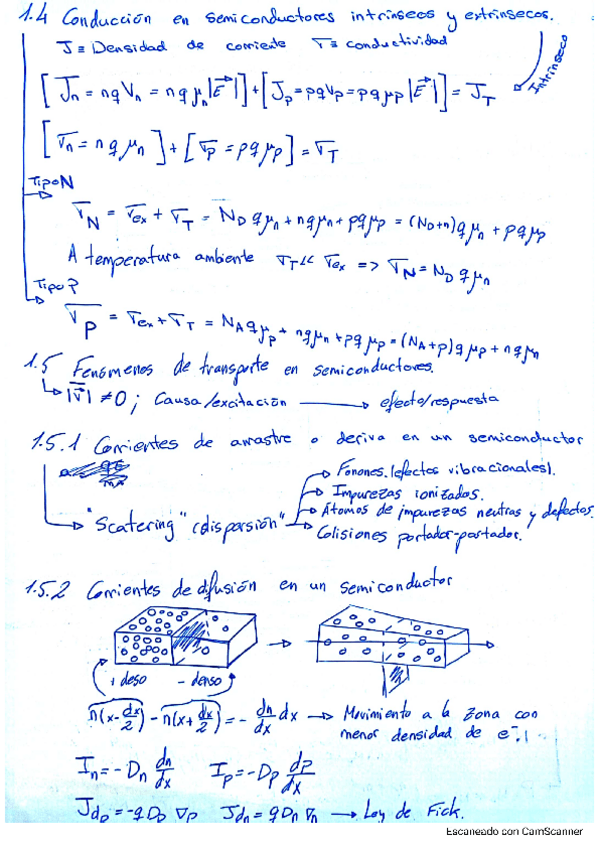 1.4 Conducción en semiconductores intrínsecos y extrínsecos.
J ≡ Densidad de corriente σ ≡ conductividad
Intrínseco
[Jn = nqVn = nqμn|E⃗|] + [Jp = pqVp = pqμp|E⃗|] = JT
[σn = nqμn] + [σp = pqμp] = σT
Tipo N
σN = σex + σT = ND qμn + nqμn + pqμp = (ND+n)qμn + pqμp
A temperatura ambiente σT << σex => σN = ND qμn
Tipo P
σP = σex + σT = NA qμp + nqμn + pqμp = (NA+p)qμp + nqμn
1.5 Fenómenos de transporte en semiconductores.
|V⃗| ≠ 0; Causa/excitación → efecto/respuesta
1.5.1 Corrientes de arrastre o deriva en un semiconductor
Fonones. (efectos vibracionales).
Impurezas ionizados.
"Scatering" (disparsión)
Átomos de impurezas neutras y defectos.
Colisiones portador-portador.
1.5.2 Corrientes de difusión en un semiconductor
+ deso - denso
n(x-dx/2) - n(x+dx/2) = - dn/dx dx → Movimiento a la zona con
menor densidad de e⁻.!
In = -Dn dn/dx Ip = -Dp dp/dx
Jdp = -q Dp ∇p Jdn = q Dn ∇n → Ley de Fick.
Escaneado con CamScanner